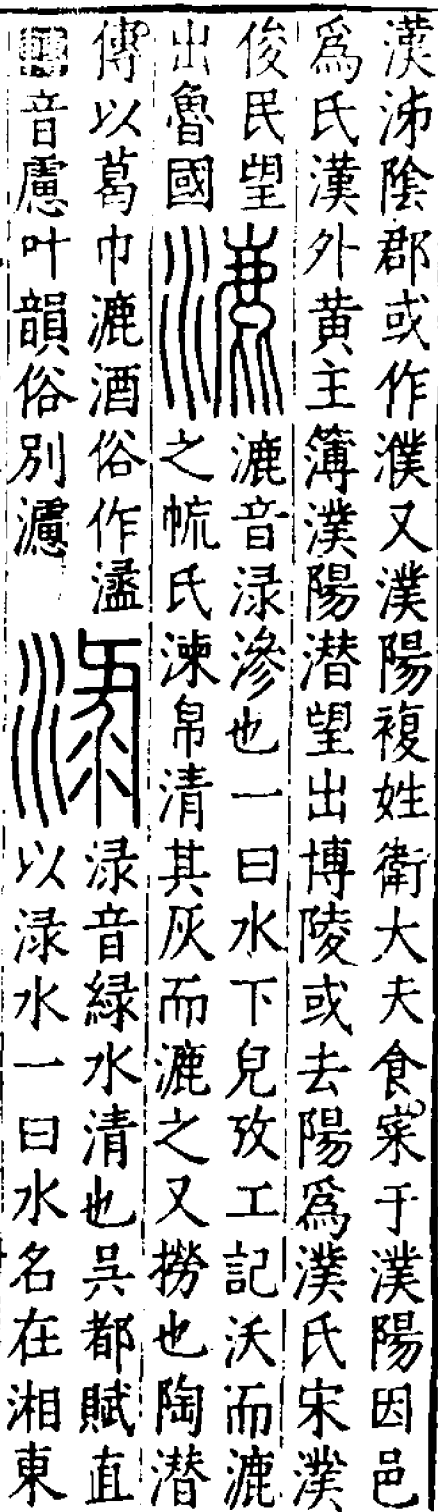 漢泲陰郡或作濮又濮陽複姓衛大夫食寀于濮陽因邑
爲氏漢外黄主簿濮陽潜望出博陵或去陽爲濮氏宋濮
俊民望
出魯國
漉
漉音渌滲也一曰水下皃攷工記沃而漉
之㡆氏湅帛清其灰而漉之又撈也陶潜
傳以葛巾漉酒俗作
轉音慮叶韻俗別濾
渌
渌音緑水清也吳都賦直
以渌水一曰水名在湘東